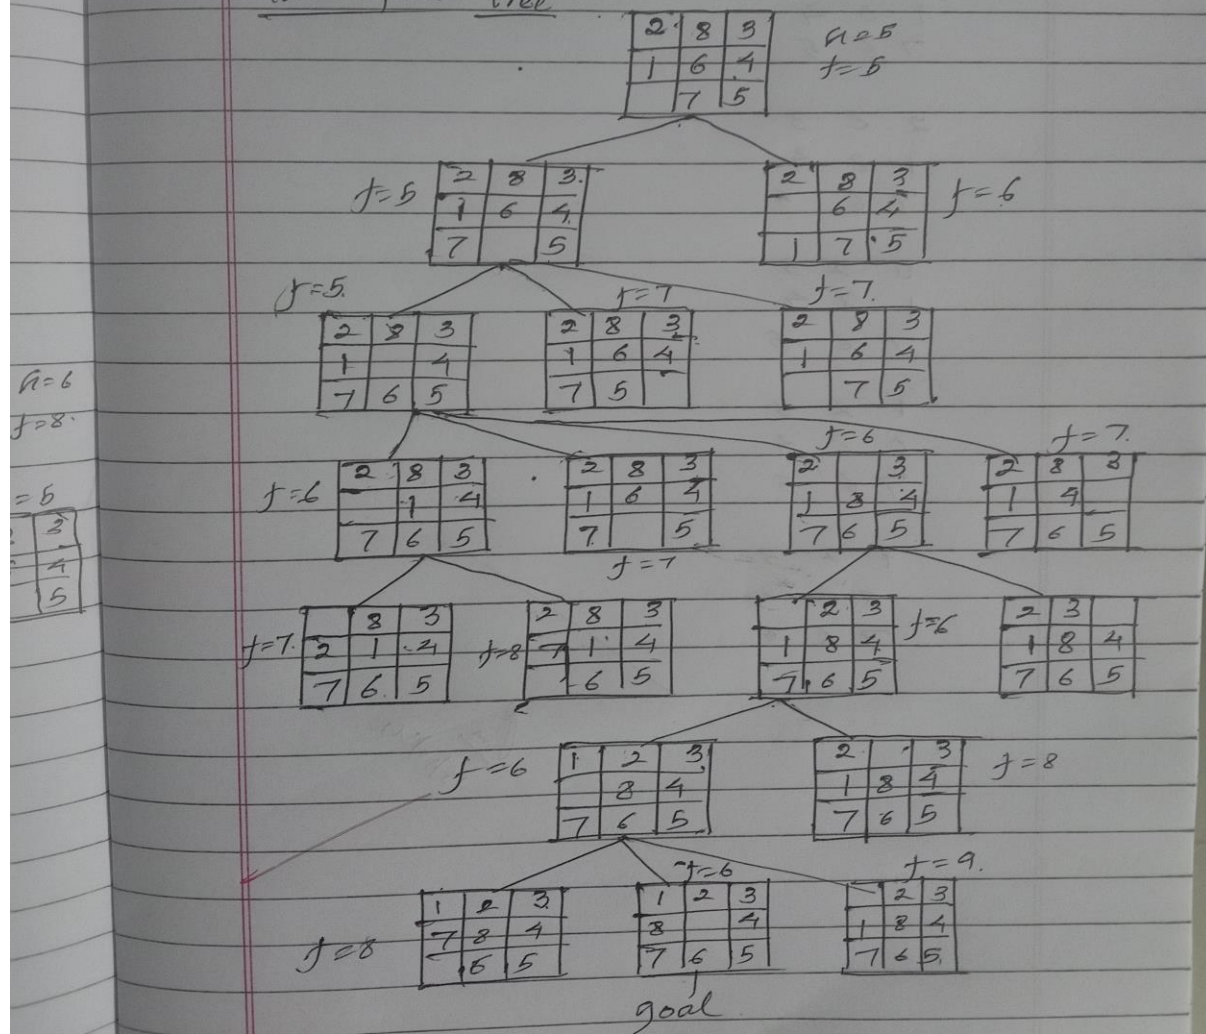 2 8 3
1 6 4
7 5
h=5
f=5
f=5
2 8 3
1 6 4
7 5
2 8 3
6 4
1 7 5
f=6
f=5.
2 8 3
1 4
7 6 5
f=7
2 8 3
1 6 4
7 5
f=7.
2 8 3
1 6 4
7 5
h=6
f=8.
=5
3
4
5
f=6
2 8 3
1 4
7 6 5
2 8 3
1 6 4
7 5
f=7
f=6
2 3
1 8 4
7 6 5
f=7.
2 8 3
1 4
7 6 5
f=7.
8 3
2 1 4
7 6 5
f=8
2 8 3
7 1 4
6 5
2 3
1 8 4
7 6 5
f=6
2 3
1 8 4
7 6 5
f=6
1 2 3
8 4
7 6 5
2 3
1 8 4
7 6 5
f=8
f=8
1 2 3
7 8 4
6 5
f=6
1 2 3
8 4
7 6 5
goal
f=9.
2 3
1 8 4
7 6 5